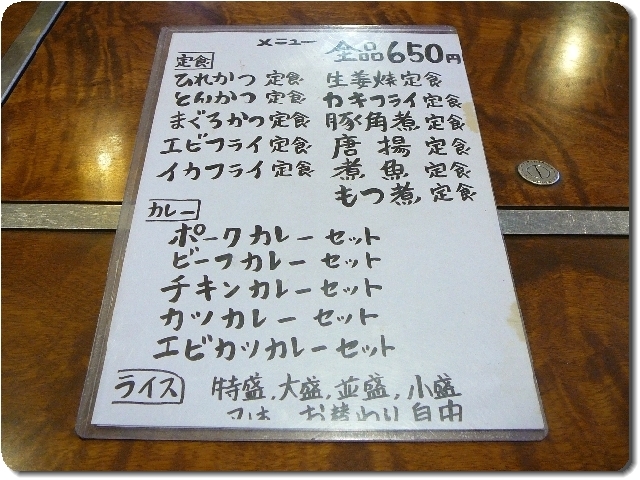 メニュー 全品650円
定食
ひれかつ 定食 生姜焼定食
とんかつ 定食 カキフライ定食
まぐろかつ定食 豚角煮 定食
エビフライ 定食 唐揚 定食
イカフライ 定食 煮魚 定食
もつ煮 定食
カレー
ポークカレーセット
ビーフカレーセット
チキンカレーセット
カツカレーセット
エビカツカレーセット
ライス 特盛.大盛.並盛.小盛
又は お替わり自由